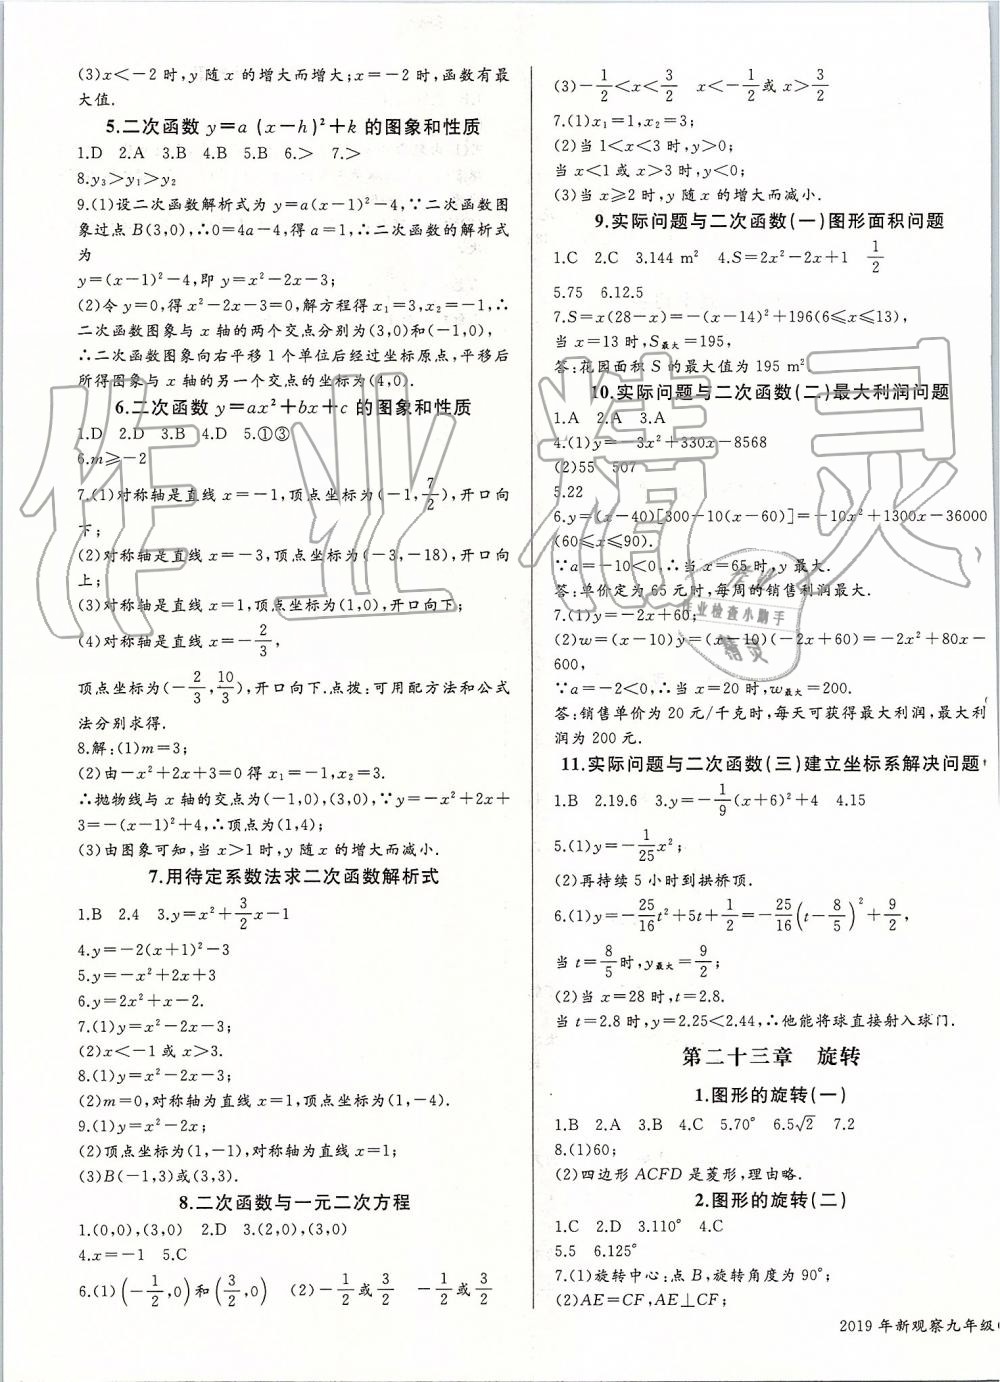 (3)x<-2时,y随x的增大而增大;x=-2时,函数有最
大值.
5.二次函数 y=a(x-h)²+k 的图象和性质
1.D 2.A 3.B 4.B 5.B 6.> 7.>
8.y₃>y₁>y₂
9.(1)设二次函数解析式为 y=a(x-1)²-4,∵二次函数图
象过点B(3,0),∴0=4a-4,得a=1,∴二次函数的解析式
为
y=(x-1)²-4,即 y=x²-2x-3;
(2)令y=0,得x²-2x-3=0,解方程得x₁=3,x₂=-1,∴
二次函数图象与x轴的两个交点分别为(3,0)和(-1,0),
∴二次函数图象向右平移1个单位后经过坐标原点,平移后
所得图象与x轴的另一个交点的坐标为(4,0).
6.二次函数 y=ax²+bx+c 的图象和性质
1.D 2.D 3.B 4.D 5.①③
6.m≥-2
7.(1)对称轴是直线x=-1,顶点坐标为(-1,7/2),开口向
下;
(2)对称轴是直线x=-3,顶点坐标为(-3,-18),开口向
上;
(3)对称轴是直线x=1,顶点坐标为(1,0),开口向下;
(4)对称轴是直线x=-2/3,
顶点坐标为(-2/3,10/3),开口向下.点拨:可用配方法和公式
法分别求得.
8.解:(1)m=3;
(2)由-x²+2x+3=0得x₁=-1,x₂=3.
∴抛物线与x轴的交点为(-1,0),(3,0),∵y=-x²+2x+
3=-(x-1)²+4,∴顶点为(1,4);
(3)由图象可知,当x>1时,y随x的增大而减小.
7.用待定系数法求二次函数解析式
1.B 2.4 3.y=x²+3/2x-1
4.y=-2(x+1)²-3
5.y=-x²+2x+3
6.y=2x²+x-2.
7.(1)y=x²-2x-3;
(2)x<-1或x>3.
8.(1)y=x²-2x-3;
(2)m=0,对称轴为直线x=1,顶点坐标为(1,-4).
9.(1)y=x²-2x;
(2)顶点坐标为(1,-1),对称轴为直线x=1;
(3)B(-1,3)或(3,3).
8.二次函数与一元二次方程
1.(0,0),(3,0) 2.D 3.(2,0),(3,0)
4.x=-1 5.C
6.(1)(-1/2,0)和(3/2,0) (2)-1/2或3/2 -1/2或3/2
(3)-1/2<x<3/2 x<-1/2或x>3/2
7.(1)x₁=1,x₂=3;
(2)当1<x<3时,y>0;
当x<1或x>3时,y<0;
(3)当x≥2时,y随x的增大而减小.
9.实际问题与二次函数(一)图形面积问题
1.C 2.C 3.144 m² 4.S=2x²-2x+1 1/2
5.75 6.12.5
7.S=x(28-x)=-(x-14)²+196(6≤x≤13),
当x=13时,S最大=195,
答:花园面积S的最大值为195 m².
10.实际问题与二次函数(二)最大利润问题
1.A 2.A 3.A
4.(1)y=-3x²+330x-8568
(2)55 507
5.22
6.y=(x-40)[300-10(x-60)]=-10x²+1300x-36000
(60≤x≤90).
∵a=-10<0,∴当x=65时,y最大.
答:单价定为65元时,每周的销售利润最大.
7.(1)y=-2x+60;
(2)w=(x-10)y=(x-10)(-2x+60)=-2x²+80x-
600,
∵a=-2<0,∴当x=20时,w最大=200.
答:销售单价为20元/千克时,每天可获得最大利润,最大利
润为200元.
11.实际问题与二次函数(三)建立坐标系解决问题
1.B 2.19.6 3.y=-1/9(x+6)²+4 4.15
5.(1)y=-1/25x²;
(2)再持续5小时到拱桥顶.
6.(1)y=-25/16t²+5t+1/2=-25/16(t-8/5)²+9/2,
当t=8/5时,y最大=9/2;
(2)当x=28时,t=2.8.
当t=2.8时,y=2.25<2.44,∴他能将球直接射入球门.
第二十三章 旋转
1.图形的旋转(一)
1.B 2.A 3.B 4.C 5.70° 6.5√2 7.2
8.(1)60;
(2)四边形ACFD是菱形,理由略.
2.图形的旋转(二)
1.C 2.D 3.110° 4.C
5.5 6.125°
7.(1)旋转中心:点B,旋转角度为90°;
(2)AE=CF,AE⊥CF;
2019年新观察九年级
作业精灵
作业检查小助手
精灵